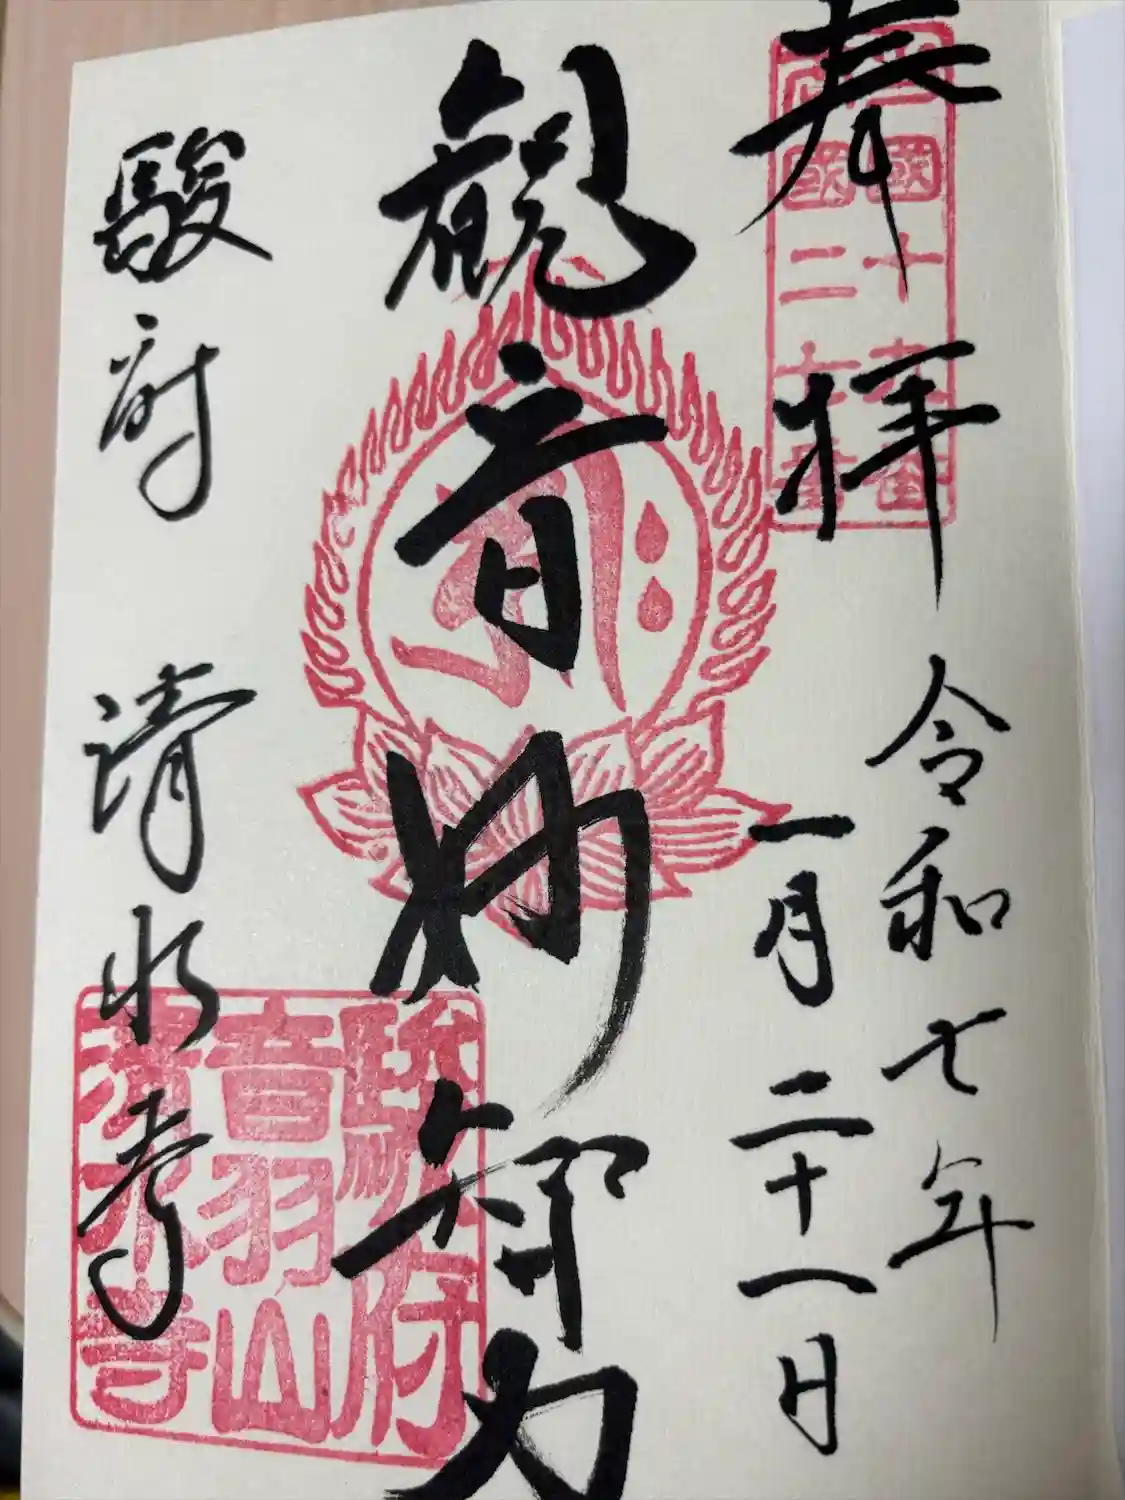 奉拝
令和七年
一月二十八日
観音妙智力
駿府 清水寺
駿府
音羽山
清水寺